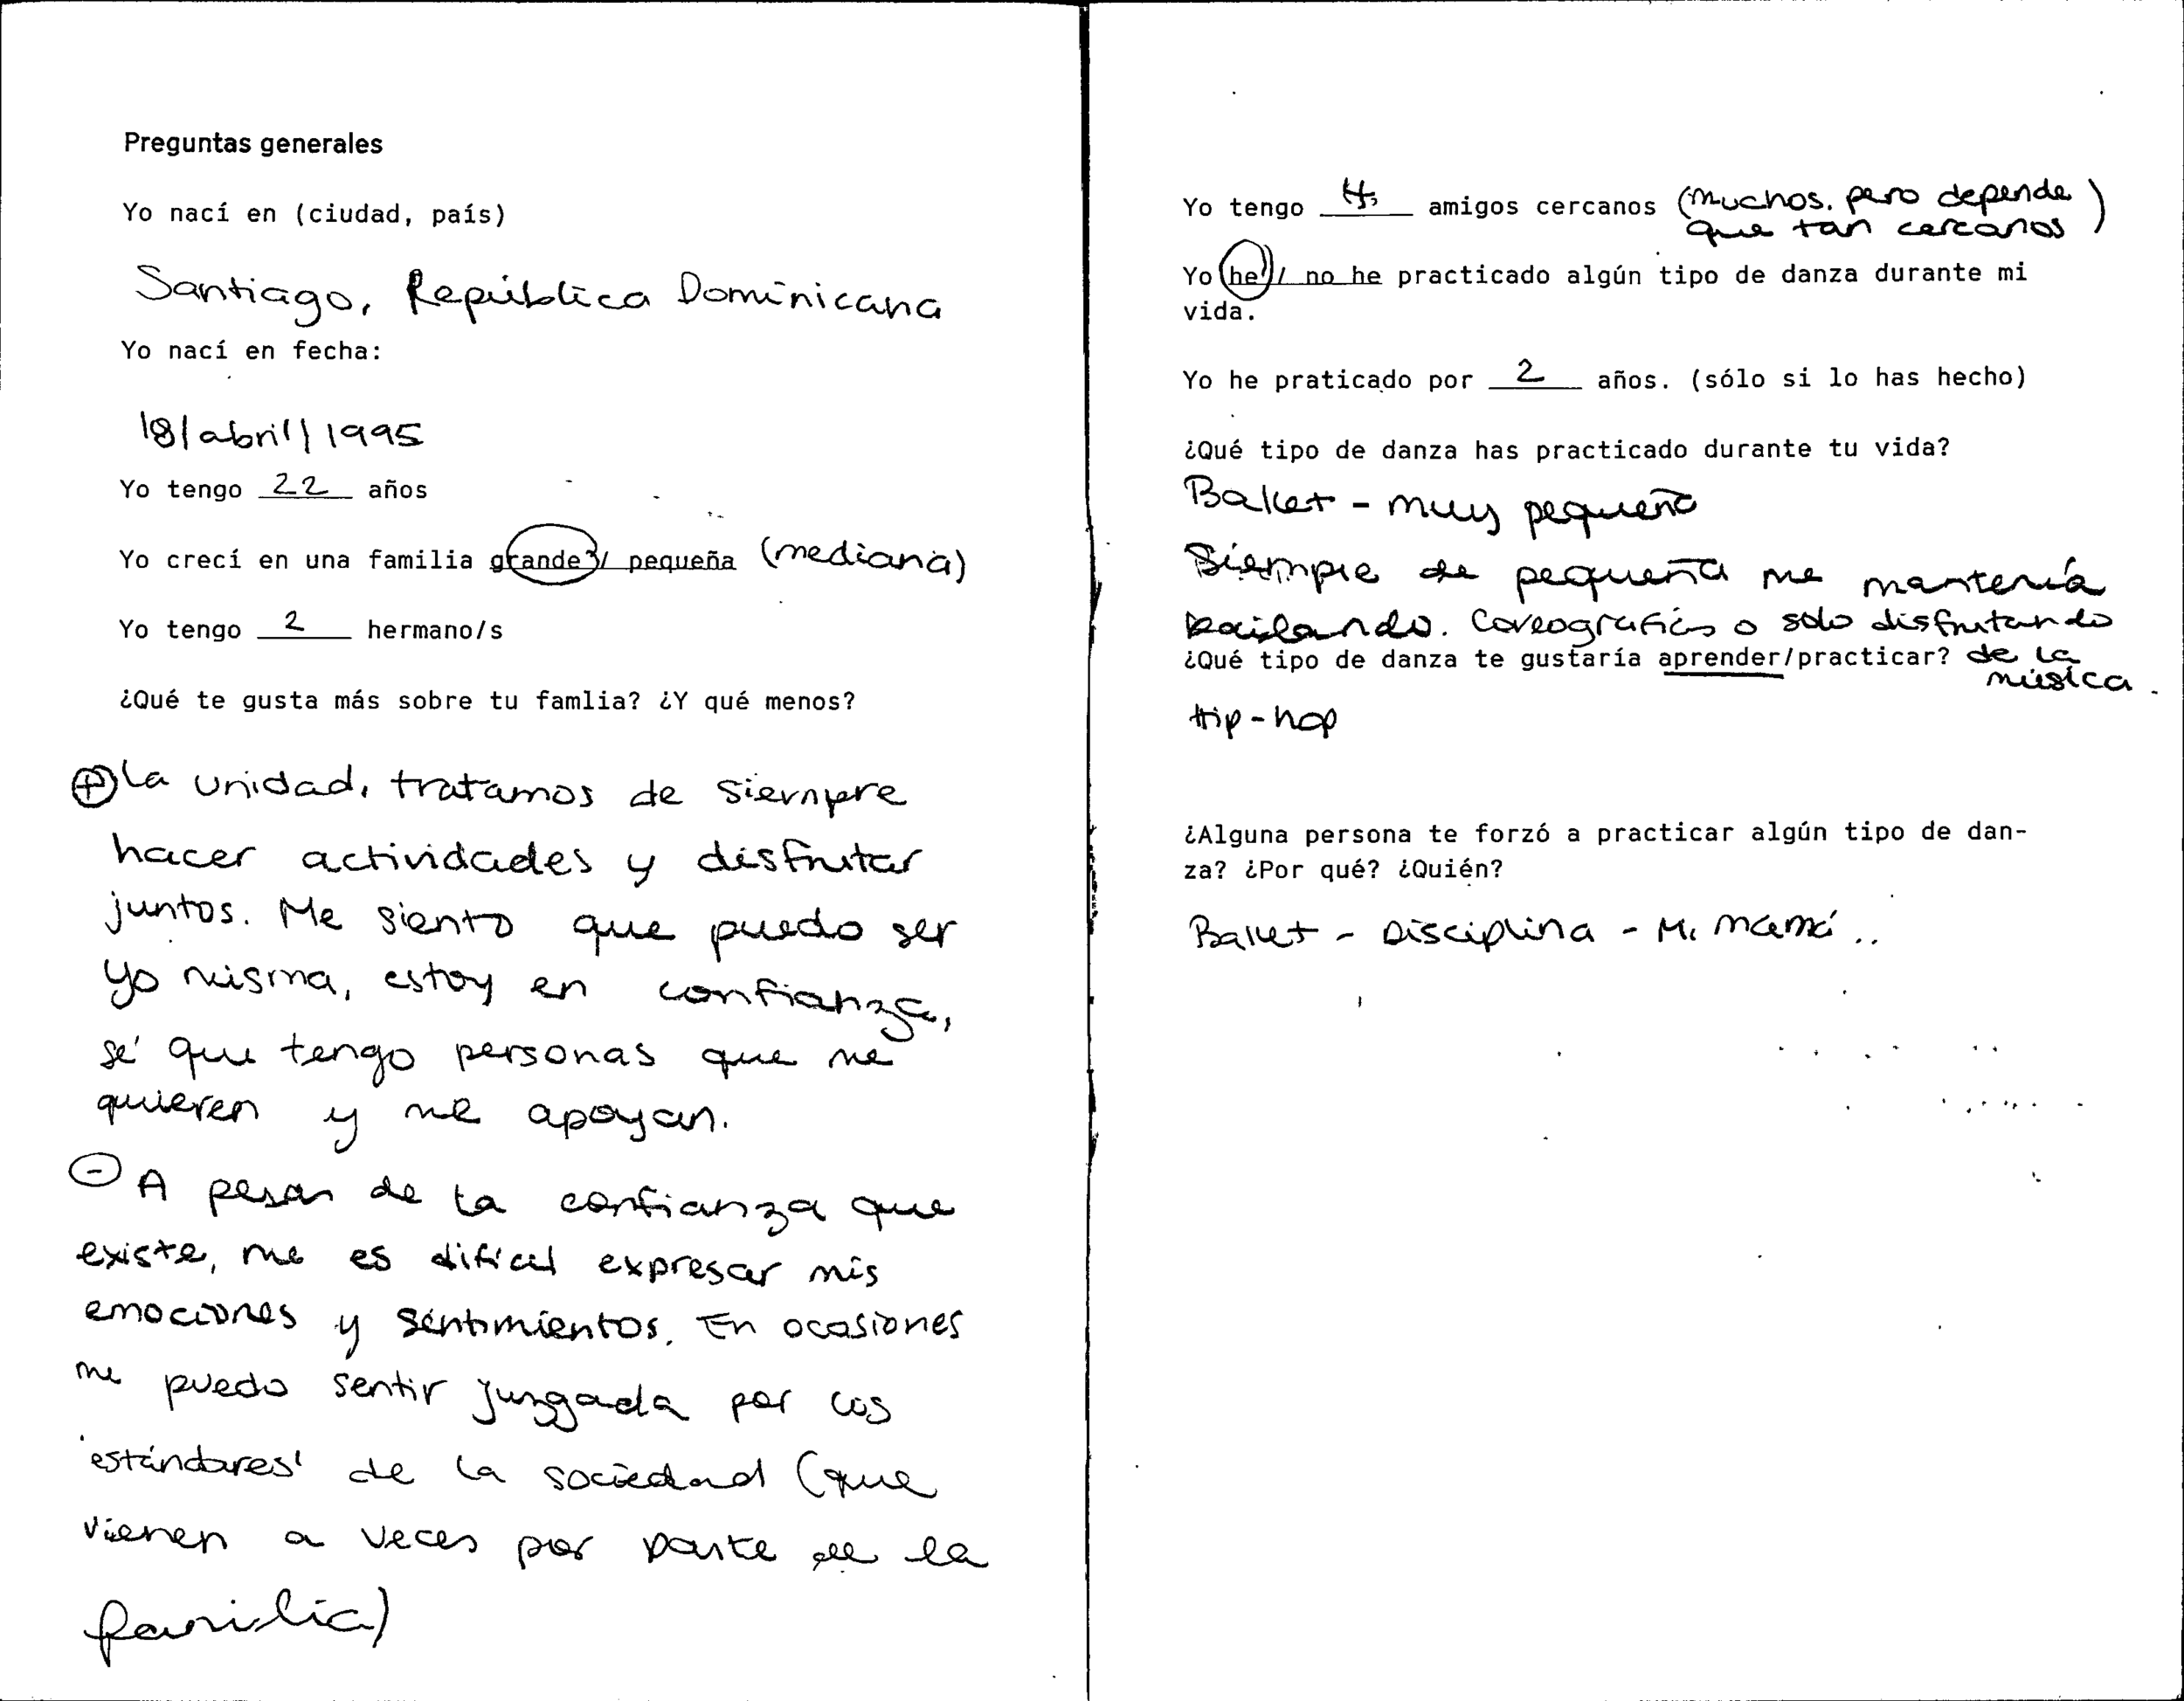 Preguntas generales
Yo nací en (ciudad, país)
Santiago, República Dominicana
Yo nací en fecha:
18/abril/1995
Yo tengo 22 años
Yo crecí en una familia grande/ pequeña (mediana)
Yo tengo 2 hermano/s
¿Qué te gusta más sobre tu famlia? ¿Y qué menos?
+ La unidad, tratamos de siempre
hacer actividades y disfrutar
juntos. Me siento que puedo ser
yo misma, estoy en confianza,
sé que tengo personas que me
quieren y me apoyan.
- A pesar de la confianza que
existe, me es dificil expresar mis
emociones y sentimientos. En ocasiones
me puedo sentir juzgada por los
'estándares' de la sociedad (que
vienen a veces por parte de la
familia)
Yo tengo amigos cercanos (muchos. pero depende
que tan cercanos)
Yo he/ no he practicado algún tipo de danza durante mi
vida.
Yo he praticado por 2 años. (sólo si lo has hecho)
¿Qué tipo de danza has practicado durante tu vida?
Ballet - muy pequeña
Siempre de pequeña me mantenía
bailando. Coreografías o solo disfrutando
de la
música.
¿Qué tipo de danza te gustaría aprender/practicar?
Hip-hop
¿Alguna persona te forzó a practicar algún tipo de dan-
za? ¿Por qué? ¿Quién?
Ballet - Disciplina - Mi mamá..